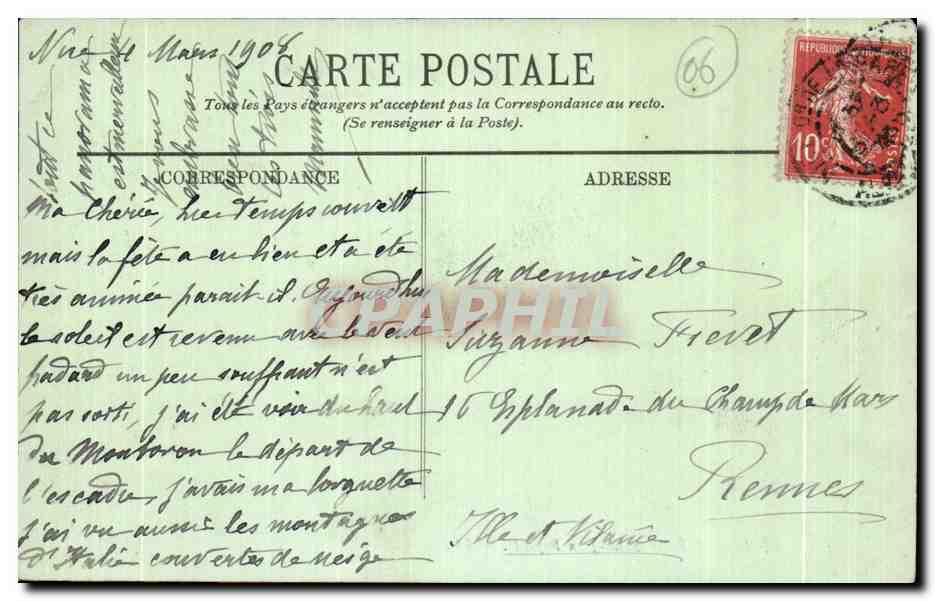 Nice 4 Mars 1908
CARTE POSTALE
Tous les Pays étrangers n'acceptent pas la Correspondance au recto.
(Se renseigner à la Poste).
06
RÉPUBLIQUE FRANÇAISE
10
POSTES
CORRESPONDANCE
ADRESSE
Ma Chérie, temps couvert
mais la fête a eu lieu et a été
très animée parait-il. Aujourd'hui
le soleil est revenu avec le vent
un peu souffrant n'est
pas sorti, j'ai été voir du haut
du Monboron le départ de
l'escadre, j'avais ma lorgnette
j'ai vu aussi les montagnes
d'Italie couvertes de neige
tout ce
panorama
est merveilleux
Mademoiselle
Suzanne Frevet
16 Esplanade du Champ de Mars
Rennes
Ille et Vilaine
CPAPHIL